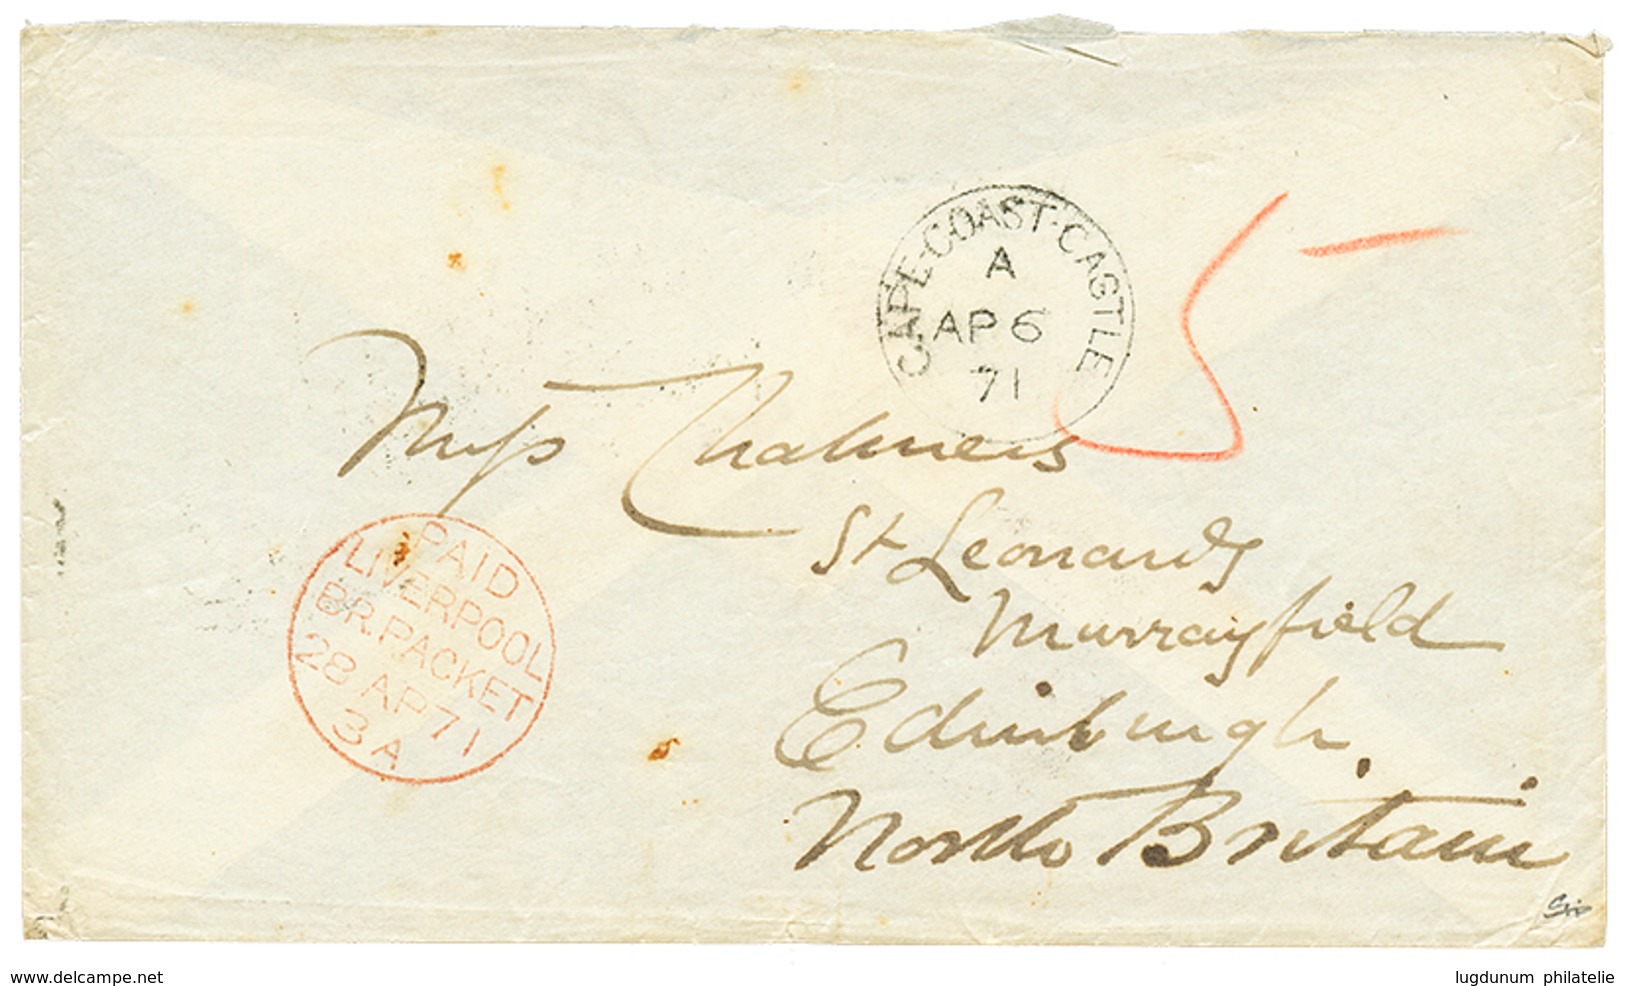 CAPE-COAST-CASTLE
A
AP 6
71
5
Miss Chalmers
St Leonards
Murrayfield
Edinburgh
North Britain
PAID
LIVERPOOL
BR. PACKET
28 AP 71
3 A
www.delcampe.net
lugdunum philatelie